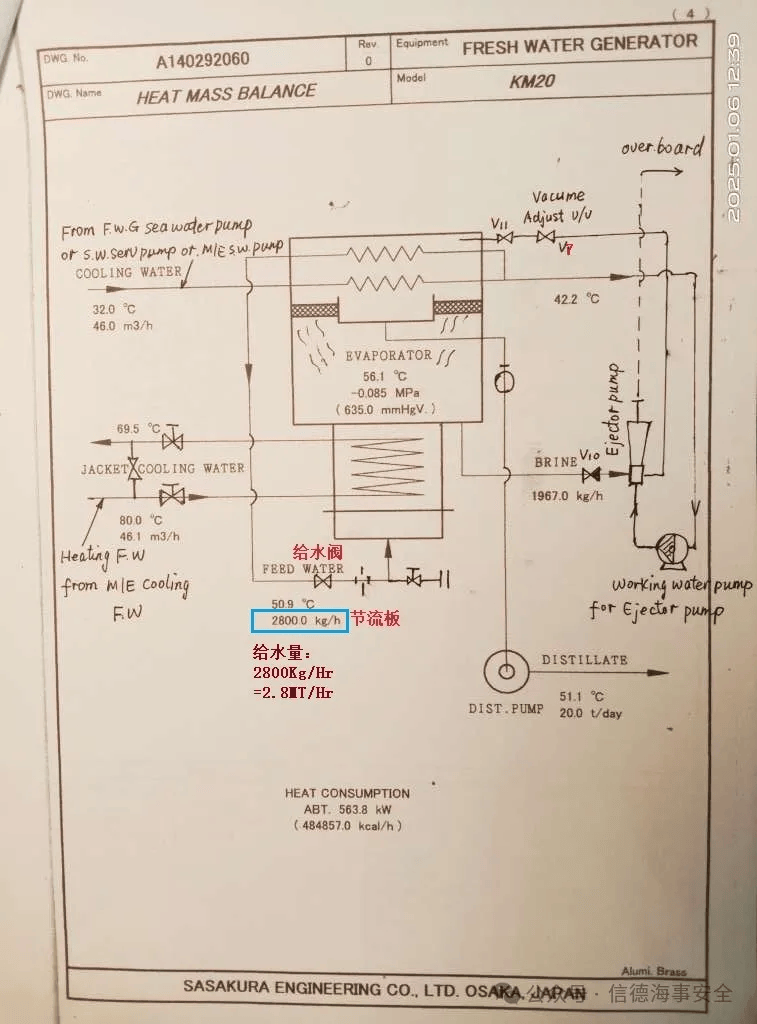 ( 4 )
DWG. No.
A140292060
Rev.
0
Equipment
FRESH WATER GENERATOR
DWG. Name
HEAT MASS BALANCE
Model
KM20
2025.01.06 12:39
over.board
Vacume
Adjust V/V
V11
V7
From F.W.G sea water pump
or S.W. serv pump or. M/E S.W. pump
COOLING WATER
32.0 °C
46.0 m3/h
42.2 °C
EVAPORATOR
56.1 °C
-0.085 MPa
( 635.0 mmHgV. )
Ejector pump
69.5 °C
JACKET COOLING WATER
80.0 °C
46.1 m3/h
BRINE
V10
1967.0 kg/h
Heating F.W
from M/E Cooling
F.W
给水阀
FEED WATER
50.9 °C
2800.0 kg/h
节流板
给水量：
2800Kg/Hr
=2.8MT/Hr
Working water pump
for Ejector pump
DISTILLATE
DIST. PUMP
51.1 °C
20.0 t/day
HEAT CONSUMPTION
ABT. 563.8 kW
( 484857.0 kcal/h )
Alumi. Brass
SASAKURA ENGINEERING CO., LTD. OSAKA, JAPAN
公众号 · 信德海事安全